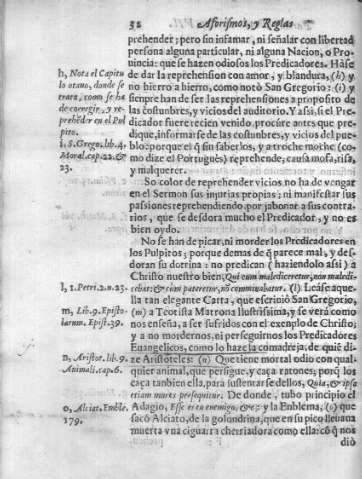 52 Aforismos, y Reglas
prehender; pero sin infamar, ni señalar con libertad
persona alguna particular, ni alguna Nacion, o Pro-
uincia: que se hazen odiosos los Predicadores. Hase
de dar la reprehension con amor, y blandura, (h) y
no hierro a hierro, como notò San Gregorio: (i) y
siempre han de ser las reprehensiones a proposito de
las costunbres, y vicios del auditorio. Y assi, si el Pre-
dicador fuere recien venido, procure antes que pre-
dique, informarse de las costunbres, y vicios del pue-
blo: porque el q̃ sin saberlos, y a troche moche (co-
mo dize el Portuguès) reprehende, causa mofa, risa,
y malquerer.
So color de reprehender vicios no ha de vengar
en el Sermon sus injurias propias; ni manifestar sus
passiones reprehendiendo, por jabonar a sus contra-
rios, que se desdora mucho el Predicador, y no es
bien oydo.
No se han de picar, ni morder los Predicadores en
los Pulpitos; porque demas de q̃ parece mal, y des-
doran su dotrina: no predican (haziendolo assi) a
Christo nuestro bien, Qui cum malediceretur, non maledi-
cebat: & cum pateretur, nõ comminabatur. (l) Lease aque-
lla tan elegante Carta, que escriuiò San Gregorio,
(m) a Teotista Matrona Ilustrissima, y se verà como
nos enseña, a ser sufridos con el exenplo de Christo;
y a no mordernos, ni perseguirnos los Predicadores
Euangelicos, como lo haze la comadreja, de quiẽ di-
ze Aristoteles: (n) Que tiene mortal odio con qual-
quier animal, que persigue, y caça ratones; porq̃ los
caça tanbien ella, para sustentarse dellos, Quia, & ipsa
etiam mures persequitur. De donde, tubo principio el
Adagio, Esse es tu enemigo, &c. y la Enblema, (o) que
sacò Alciato, de la golondrina, que en su pico lleuaua
muerta vna cigarra cherriadora como ella: cõ q̃ nos
diò
h, Nota el Capitu
lo otauo, donde se
trata, como se ha
de corregir, y re-
prehẽder en el Pul
pito.
i, S. Grego. lib. 4.
Moral. cap. 22. &
23.
l, 1. Petri. 2. n. 23.
m, Lib. 9. Episto-
larum. Epist. 39.
n, Aristot. lib. 9.
Animali. cap. 6.
o, Alciat. Emble.
179.